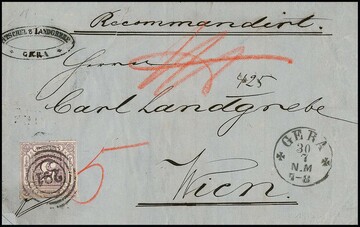 Recommandirt.
& LANDGREBE
GERA
Herrn
425
Carl Landgrebe
5
Wien.
GERA
30
7
N.M
7-8
281